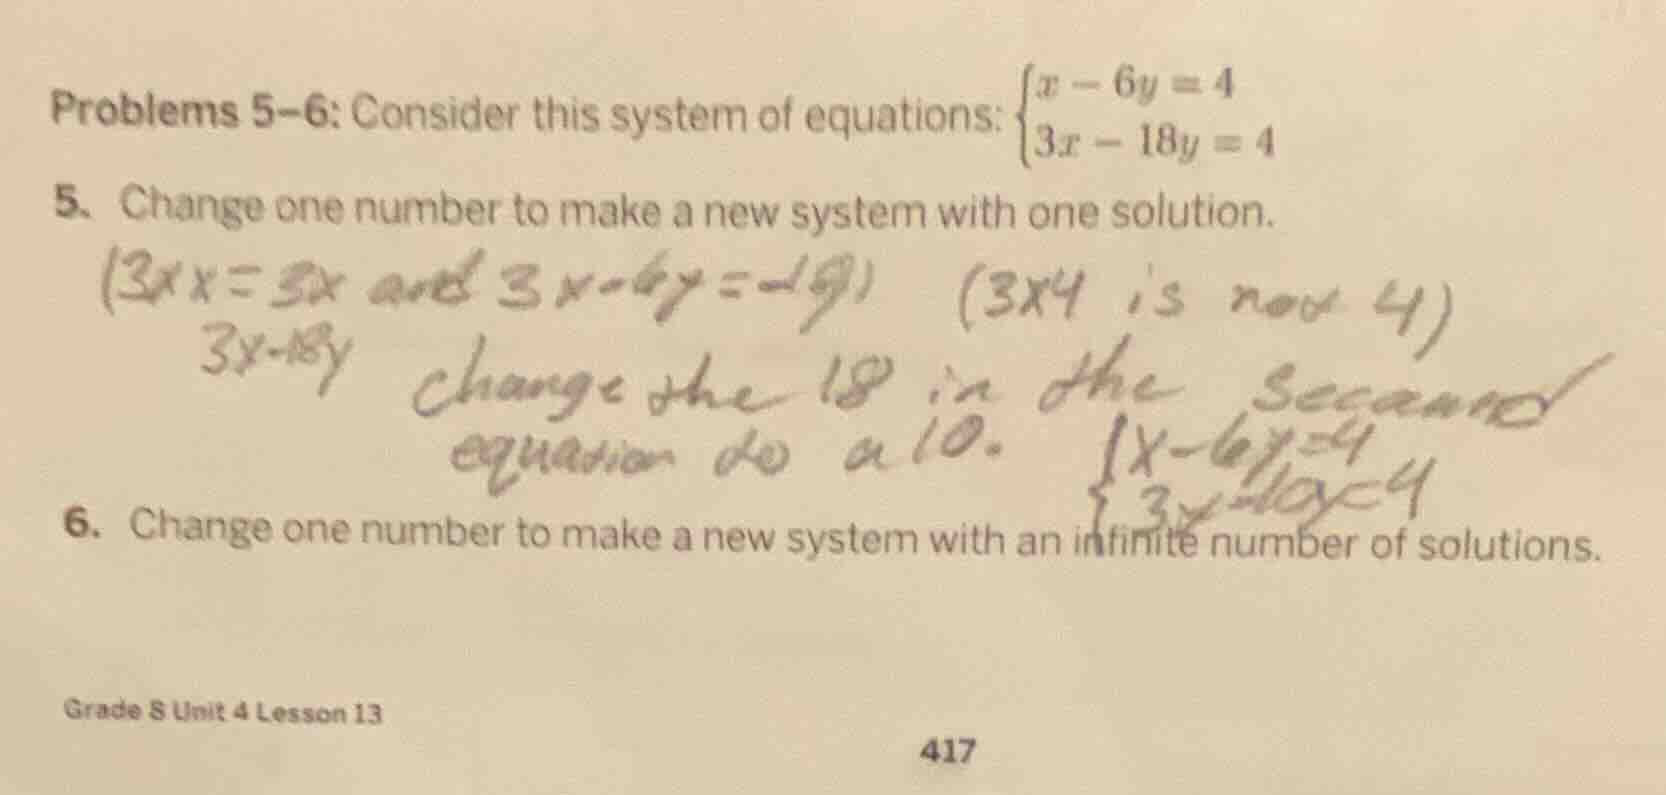 Problems 5–6: Consider this system of equations: {x − 6y = 4
3x − 18y = 4
5. Change one number to make a new system with one solution.
(3xx = 3x and 3 x -6y = -18) (3x4 is not 4)
3x-18y change the 18 in the secaund
equation to a 10. {x-6y=4
3x-10y=4
6. Change one number to make a new system with an infinite number of solutions.
Grade 8 Unit 4 Lesson 13
417